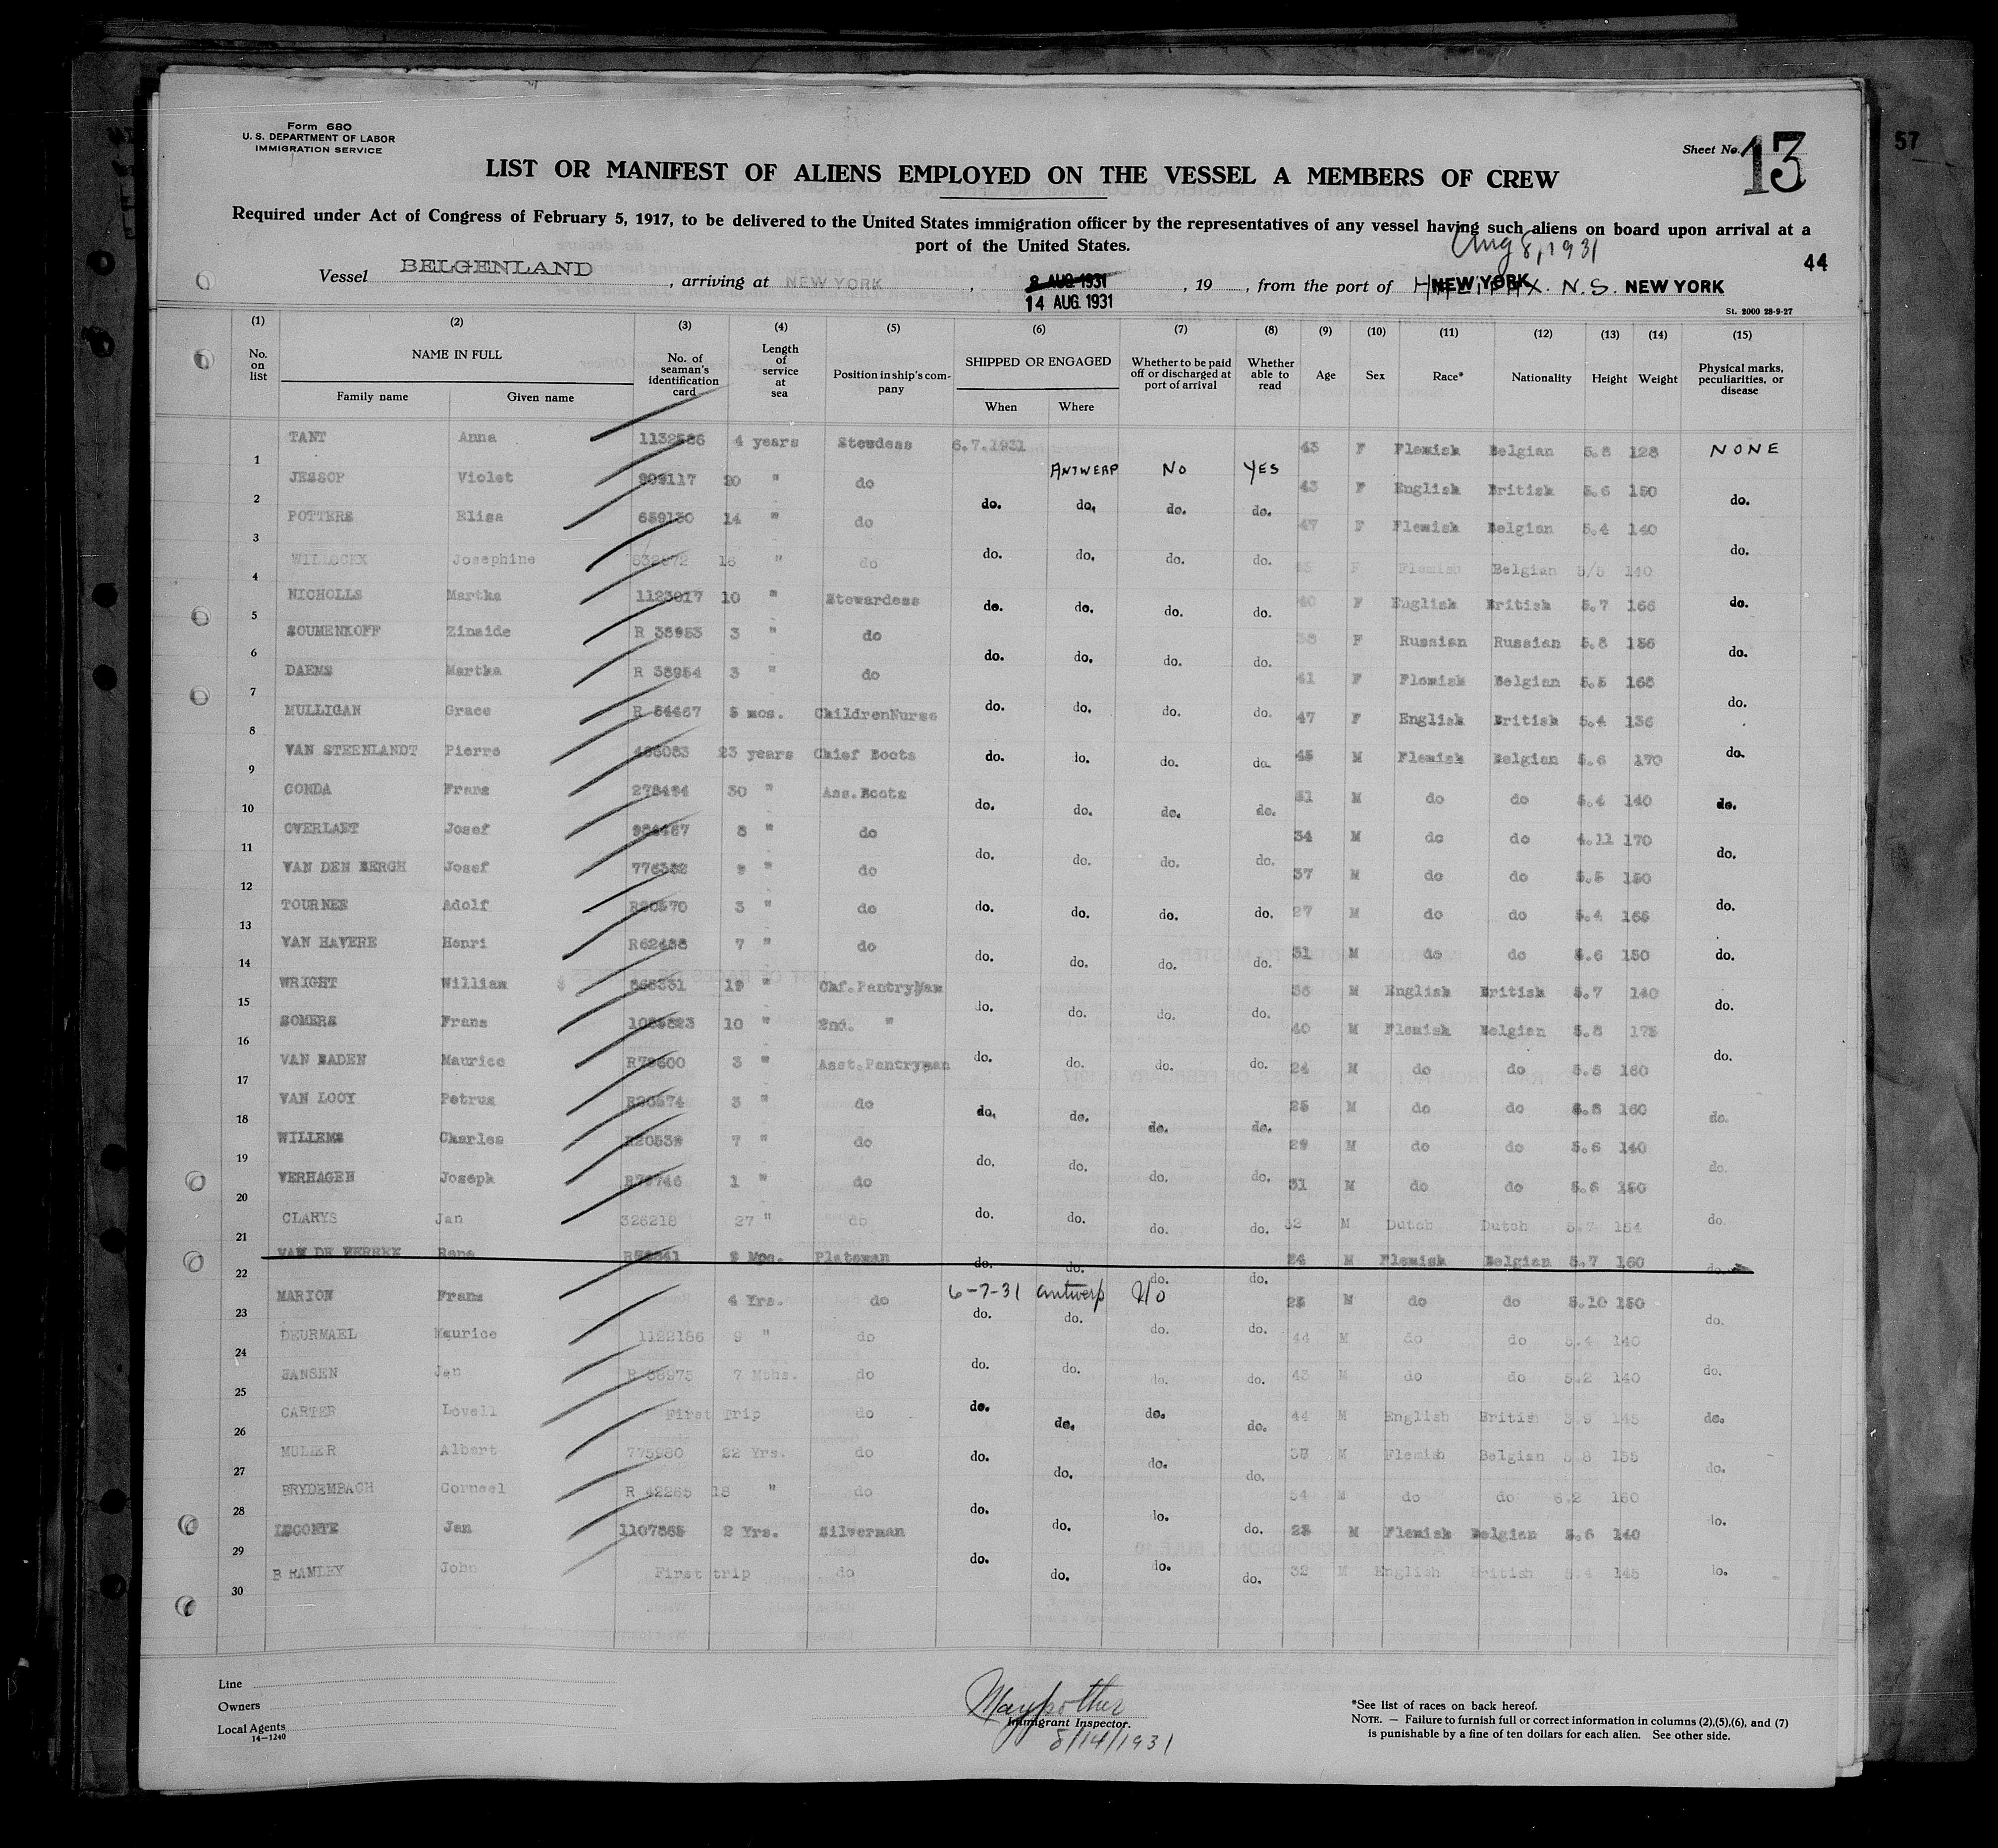 Form 680
U. S. DEPARTMENT OF LABOR
IMMIGRATION SERVICE
Sheet No. 13
57
LIST OR MANIFEST OF ALIENS EMPLOYED ON THE VESSEL A MEMBERS OF CREW
Required under Act of Congress of February 5, 1917, to be delivered to the United States immigration officer by the representatives of any vessel having such aliens on board upon arrival at a
port of the United States.
Aug 8, 1931
44
Vessel BELGENLAND, arriving at NEW YORK, 8 AUG 1931, 19, from the port of HALIFAX. N.S. NEW YORK NEW YORK
14 AUG. 1931
St. 2000 28-9-27
(1) (2) (3) (4) (5) (6) (7) (8) (9) (10) (11) (12) (13) (14) (15)
No. on list NAME IN FULL No. of seaman's identification card Length of service at sea Position in ship's company SHIPPED OR ENGAGED Whether to be paid off or discharged at port of arrival Whether able to read Age Sex Race* Nationality Height Weight Physical marks, peculiarities, or disease
Family name Given name When Where
1 TANT Anna 1132586 4 years Stewdess 6.7.1931 ANTWERP NO YES 43 F Flemish Belgian 5.8 128 NONE
2 JESSOP Violet 999117 20 " do do. do. do. do. 43 F English British 5.6 150 do.
3 POTTERS Elisa 659130 14 " do do. do. do. do. 47 F Flemish Belgian 5.4 140 do.
4 WILLOCKX Josephine 832972 16 " do F Flemish Belgian 5/5 140
5 NICHOLLS Martha 1123917 10 " Stewardess do. do. do. do. 40 F English British 5.7 166 do.
6 SOUMENKOFF Zinaide R 38953 3 " do do. do. do. do. 38 F Russian Russian 5.8 156 do.
7 DAEMS Martha R 38954 3 " do do. do. do. do. 41 F Flemish Belgian 5.5 168 do.
8 MULLIGAN Grace R 64467 5 mos. ChildrenNurse do. do. do. do. 47 F English British 5.4 136 do.
9 VAN STEENLANDT Pierre 486083 23 years Chief Boots 45 M Flemish Belgian 5.6 170
10 CONDA Frans 278494 30 " Ass.Boots do. do. do. do. 51 M do do 5.4 140 do.
11 OVERLAET Josef 984467 8 " do do. do. do. do. 34 M do do 4.11 170 do.
12 VAN DEN BERGH Josef 776332 9 " do do. do. do. do. 37 M do do 5.5 150 do.
13 TOURNEE Adolf R20570 3 " do do. do. do. do. 27 M do do 5.4 165 do.
14 VAN HAVERE Henri R62488 7 " do 31 M do do 5.6 150
15 WRIGHT William 865331 19 " Chf.PantryMan do. do. do. do. 36 M English British 5.7 140 do.
16 SOMERS Frans 1086823 10 " 2nd. " do. do. do. do. 40 M Flemish Belgian 5.8 175 do.
17 VAN BADEN Maurice R79600 3 " Asst.Pantryman do. do. do. do. 24 M do do 5.6 160 do.
18 VAN LOOY Petrus R20574 3 " do do. do. do. do. 25 M do do 5.8 160 do.
19 WILLEMS Charles R20539 7 " do do. do. do. do. 29 M do do 5.6 140 do.
20 VERHAGEN Joseph R79746 1 " do do. do. do. do. 31 M do do 5.6 150 do.
21 CLARYS Jan 326218 27 " do M Dutch Dutch 5.7 154
22 VAN DE Rene 2 Mos. Plateman do. do. do. do. 24 M Flemish Belgian 5.7 160 do.
23 MARION Frans 4 Yrs. do 6-7-31 Antwerp No do. do. do. do. 25 M do do 5.10 150 do.
24 DEURMAEL Maurice 1122186 9 " do do. do. do. do. 44 M do do 5.4 140 do.
25 HANSEN Jan R 38975 7 Mths. do do. do. do. do. 43 M do do 5.2 140 do.
26 CARTER Lovell First Trip do 44 M English British 5.9 145
27 MULIER Albert 775980 22 Yrs. do do. do. do. do. M Flemish Belgian 5.8 155 do.
28 BRYDEMBACH Corneel R 42265 18 " do do. do. do. do. 54 M do do 6.2 160 do.
29 LECONTE Jan 1107865 2 Yrs. Silverman do. do. do. do. 25 M Flemish Belgian 5.6 140 do.
30 BRAMLEY John First trip do 32 M English British 5.4 145
Line
Owners
Local Agents
14—1240
Immigrant Inspector.
8/14/1931
*See list of races on back hereof.
NOTE. — Failure to furnish full or correct information in columns (2),(5),(6), and (7)
is punishable by a fine of ten dollars for each alien. See other side.